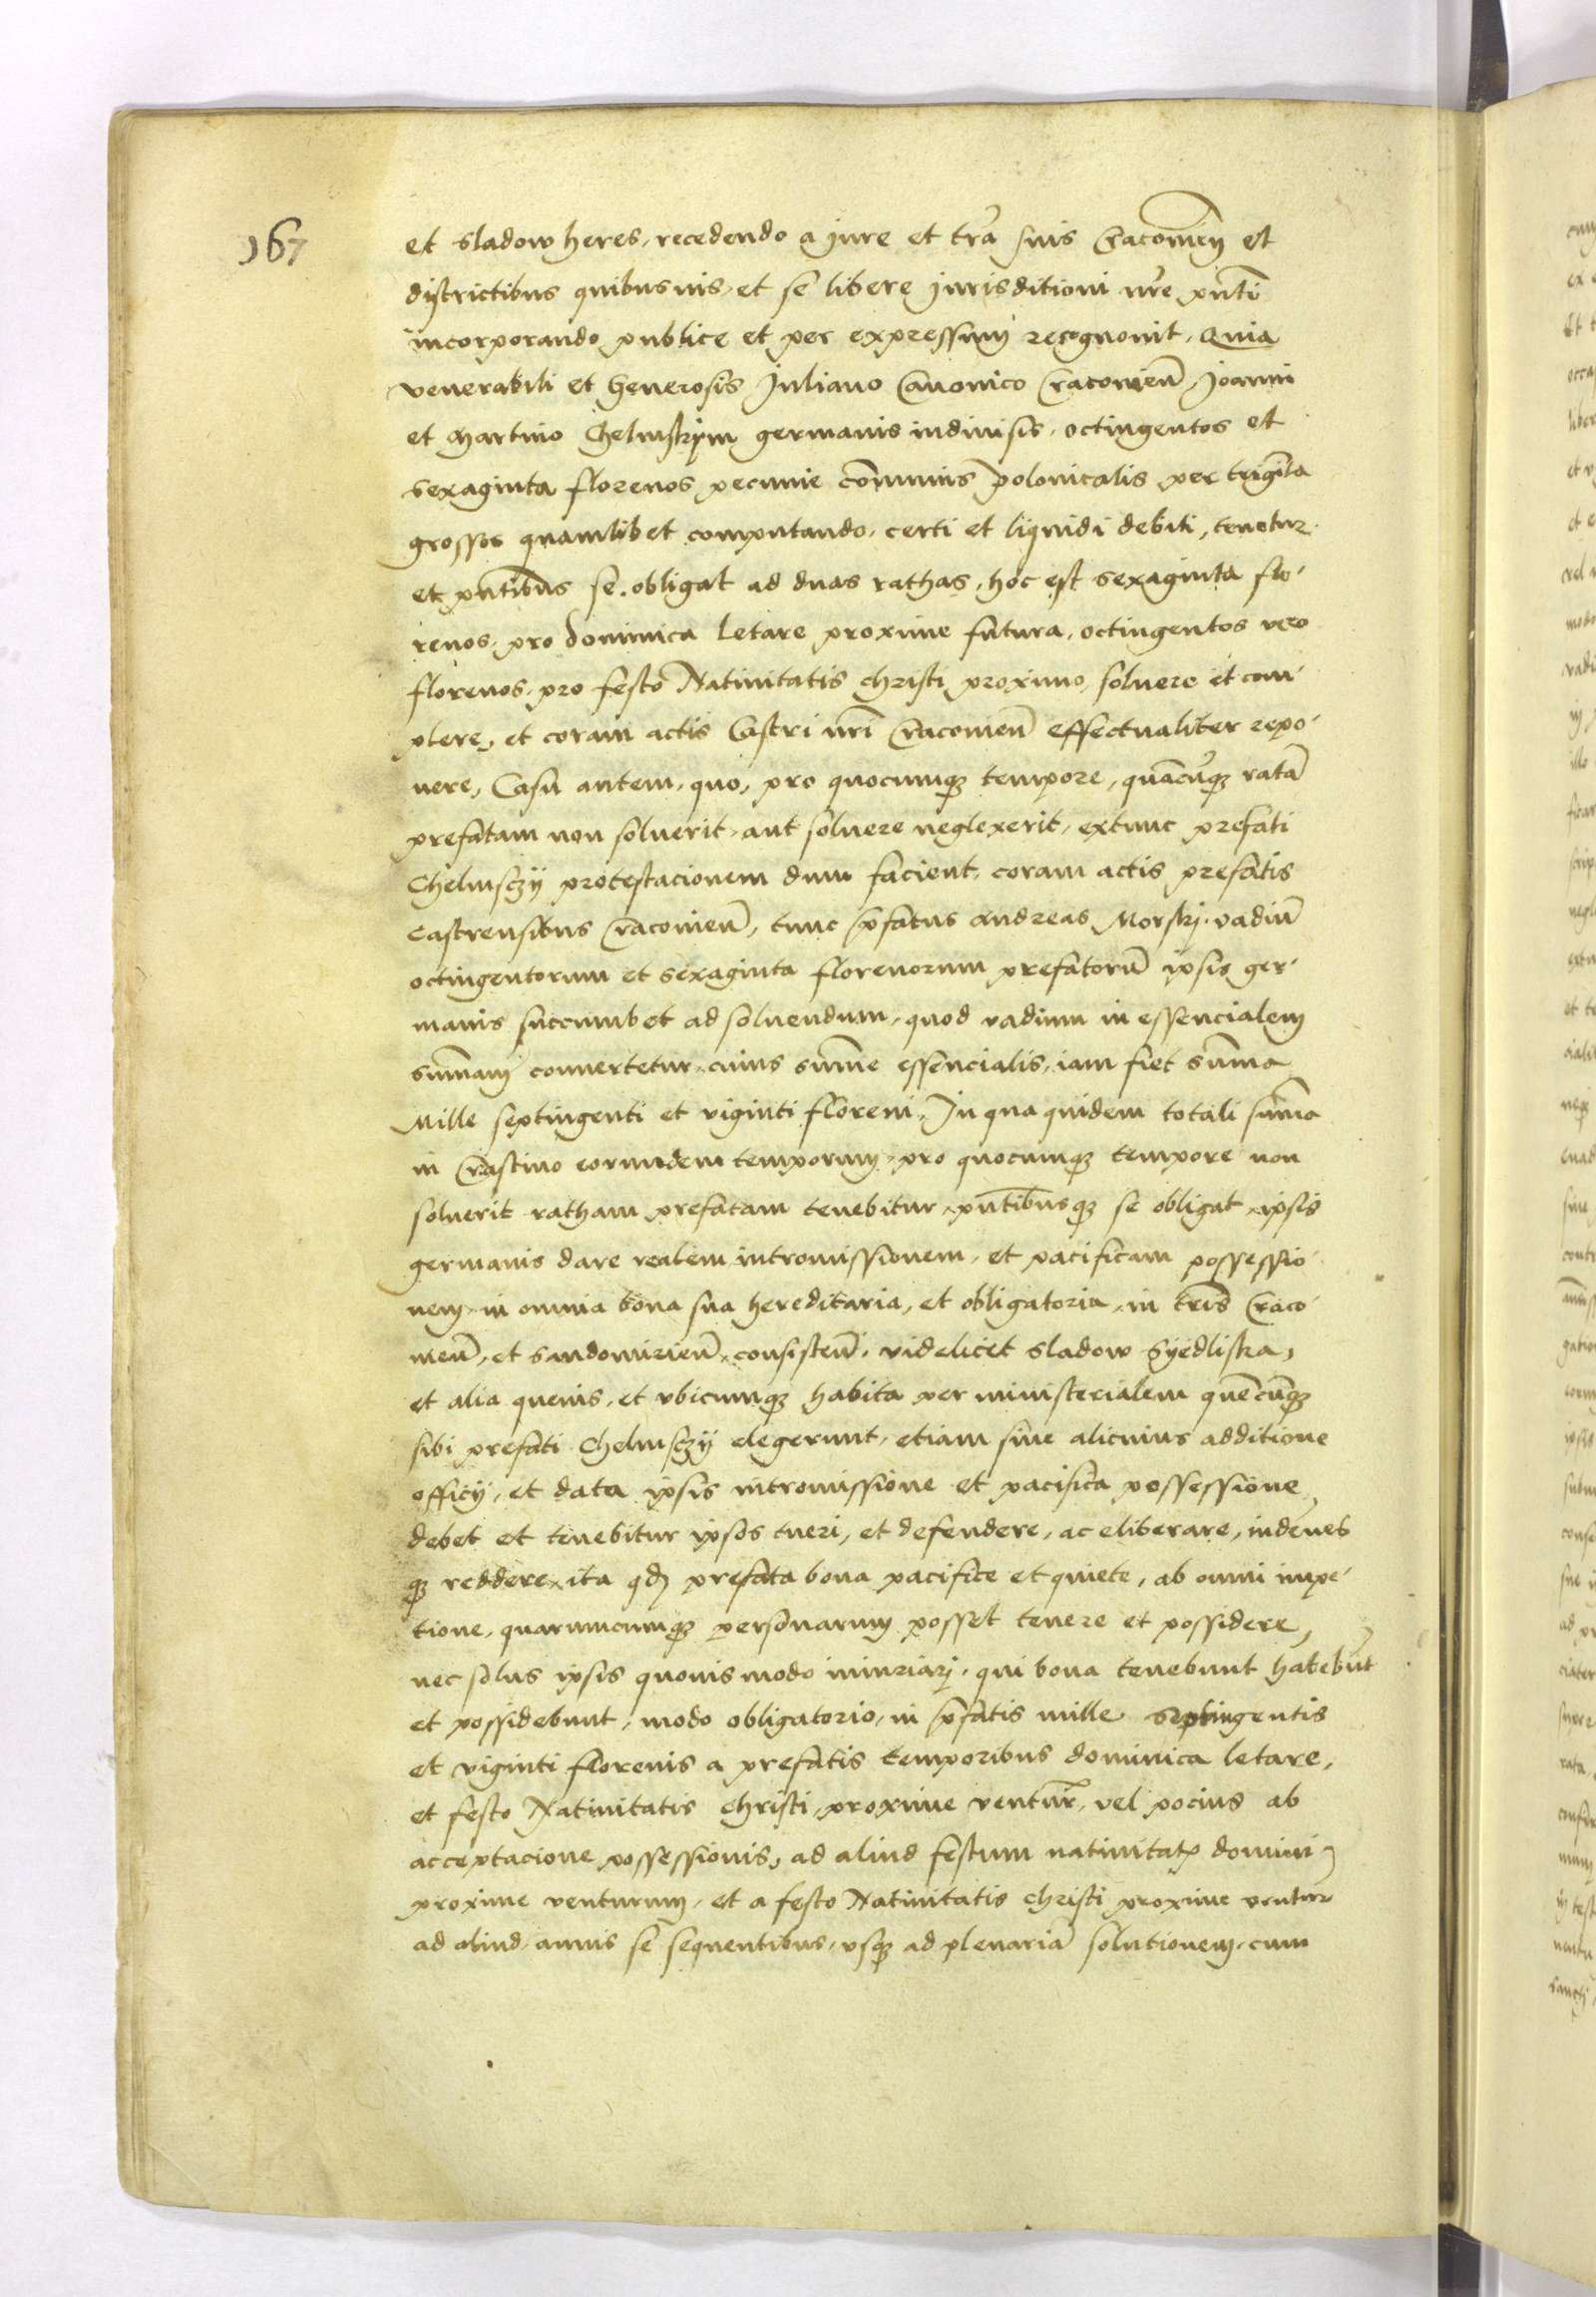 167
et Sladow heres, recedendo a jure et tra͠ suis Cracouien͠ et
districtibus quibusuis, et se libere jurisditioni nr͠e pn͠ti
incorporando publice et per expressum recognouit, Quia
venerabili et Generosis Juliano Canonico Cracouien͠, Joanni
et Martino Chelmskym germanis indiuisis, octingentos et
sexaginta florenos pecunie co͠munis polonicalis per trigi͠ta
grossos quamlibet computando, certi et liquidi debiti, tenetur
et pn͠tibus se obligat ad duas rathas, hoc est sexaginta flo-
renos, pro dominica letare proxime futura, octingentos vero
florenos, pro festo Natiuitatis christi proximo, soluere et com-
plere, et coram actis Castri nr͠i Cracouien͠ effectualiter repo-
nere, Casu autem, quo, pro quocumqz tempore, qua͠cu͠qz rata͠
prefatam non soluerit, aut soluere neglexerit, extunc prefati
Chelmsczÿ protestacionem dum facient, coram actis prefatis
Castrensibus Cracouien͠, tunc p͠fatus Andreas Morskj, vadiu͠
octingentorum et sexaginta florenorum prefatoru͠ ipsis ger-
manis succumbet ad soluendum, quod vadium in essencialem
sum͠am conuertetur, cuius sum͠e essencialis, iam fiet sum͠a
Mille septingenti et viginti floreni, In qua quidem totali sum͠a
in Crastino eorumdem temporum, pro quocumqz tempore non
soluerit ratham prefatam tenebitur, pn͠tibusqz se obligat, ipsis
germanis dare realem intromissionem, et pacificam possessio-
nem, in omnia bona sua hereditaria, et obligatoria, in tr͠is Craco-
uien͠, et Sandomirien͠, consisten͠, videlicet Sladow Syedliska,
et alia queuis, et vbicumqz habita per ministerialem que͠cu͠qz
sibi prefati Chelmsczÿ elegerunt, etiam sine alicuius additione
officÿ, et data ipsis intromissione et pacifica possessione
debet et tenebitur ipsos tueri, et defendere, ac eliberare, inde͠nes
qz reddere, ita qd͠ prefata bona pacifice et quiete, ab omni impe-
tione, quarumcumqz personarum posset tenere et possidere,
nec solus ipsis quouis modo iniuriarj, qui bona tenebunt habebu͠t
et possidebunt, modo obligatorio, in p͠fatis mille Septingentis
et viginti florenis a prefatis temporibus dominica letare,
et festo Natiuitatis Christi, proxime ventur͠, vel pocius ab
acceptacione possessionis, ad aliud festum natiuitatis domini
proxime venturum, et a festo Natiuitatis christi proxime ventur͠
ad aliud, annis se sequentibus, vsqz ad plenaria͠ solutionem, cum